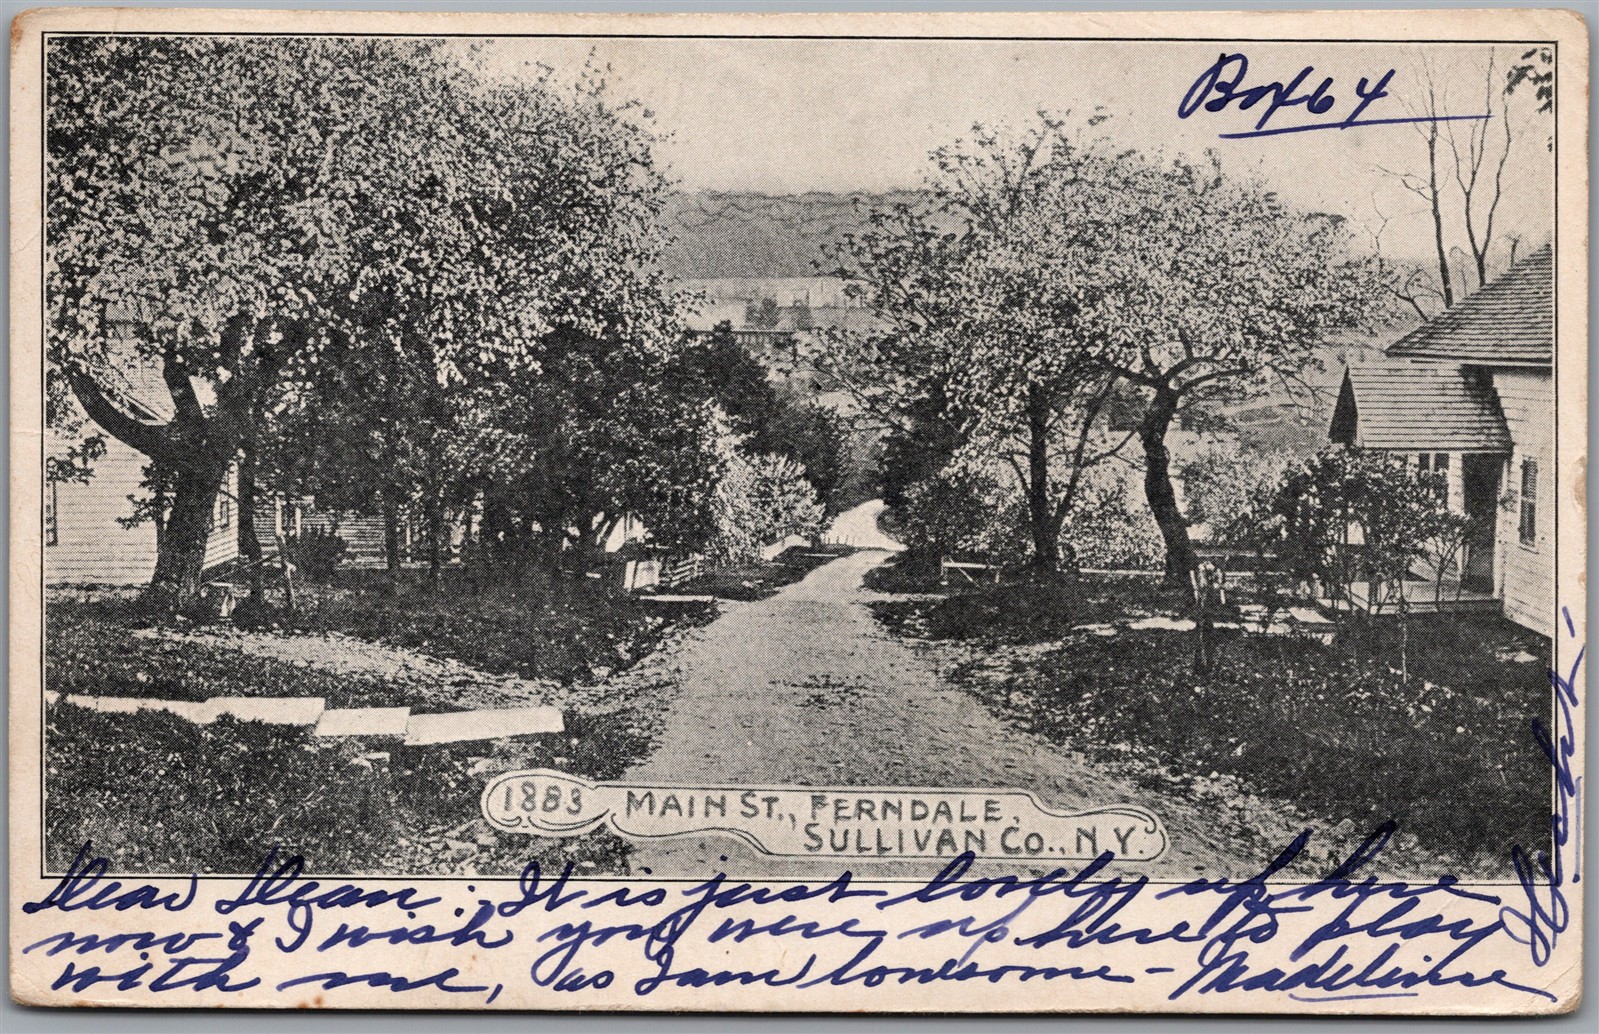 Box 64
1883 MAIN ST., FERNDALE,
SULLIVAN CO., N.Y.
Dear Dean:- It is just lovely up here
now & I wish you were up here to play
with me, as I am lonesome - Madeline